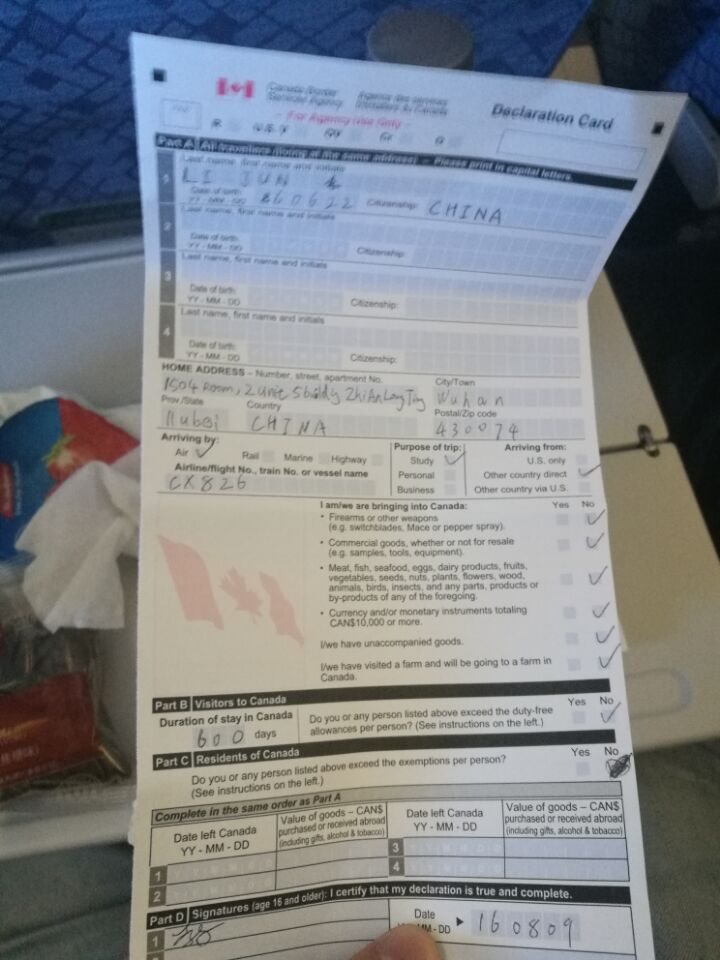 Canada Border Services Agency
Agence des services frontaliers du Canada
Declaration Card
- For Agency Use Only -
Part A All travellers (living at the same address) – Please print in capital letters.
1
Last name, first name and initials
LI JUN
Date of birth: YY - MM - DD
860622
Citizenship: CHINA
2
Last name, first name and initials
Date of birth: YY - MM - DD
Citizenship:
3
Last name, first name and initials
Date of birth: YY - MM - DD
Citizenship:
4
Last name, first name and initials
Date of birth: YY - MM - DD
Citizenship:
HOME ADDRESS – Number, street, apartment No.
City/Town
1504 Room, 2
Wuhan
Prov./State
Country
Postal/Zip code
Hubei
CHINA
430074
Arriving by:
Air
Rail
Marine
Highway
Airline/flight No., train No. or vessel name
CX826
Purpose of trip:
Study
Personal
Business
Arriving from:
U.S. only
Other country direct
Other country via U.S.
I am/we are bringing into Canada:
Yes No
• Firearms or other weapons
(e.g. switchblades, Mace or pepper spray).
• Commercial goods, whether or not for resale
(e.g. samples, tools, equipment).
• Meat, fish, seafood, eggs, dairy products, fruits,
vegetables, seeds, nuts, plants, flowers, wood,
animals, birds, insects, and any parts, products or
by-products of any of the foregoing.
• Currency and/or monetary instruments totaling
CAN$10,000 or more.
I/we have unaccompanied goods.
I/we have visited a farm and will be going to a farm in
Canada.
Part B Visitors to Canada
Duration of stay in Canada
600 days
Do you or any person listed above exceed the duty-free
allowances per person? (See instructions on the left.)
Yes No
Part C Residents of Canada
Do you or any person listed above exceed the exemptions per person?
(See instructions on the left.)
Yes No
Complete in the same order as Part A
Date left Canada
YY - MM - DD
Value of goods – CAN$
purchased or received abroad
(including gifts, alcohol & tobacco)
Date left Canada
YY - MM - DD
Value of goods – CAN$
purchased or received abroad
(including gifts, alcohol & tobacco)
1
3
2
4
Part D Signatures (age 16 and older): I certify that my declaration is true and complete.
1
Date
MM - DD
160809